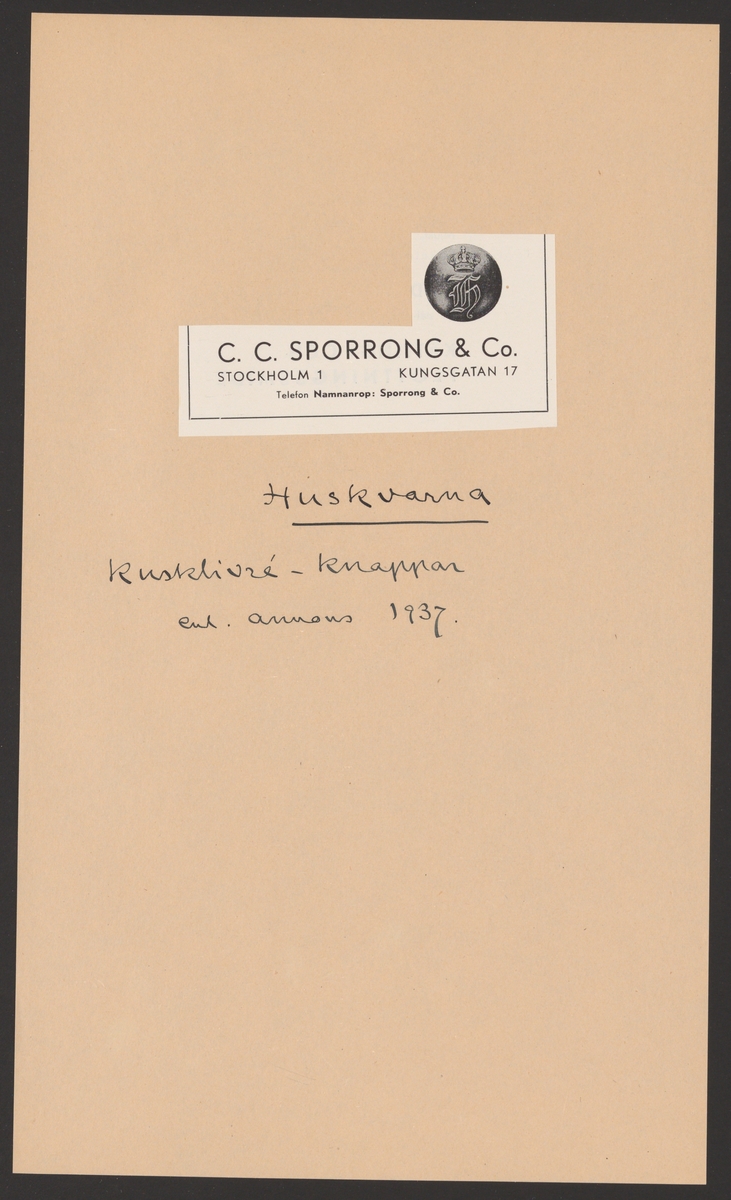 C. C. SPORRONG & Co.
STOCKHOLM 1 KUNGSGATAN 17
Telefon Namnanrop: Sporrong & Co.
Huskvarna
Kusklivré - knappar
enl. annons 1937.